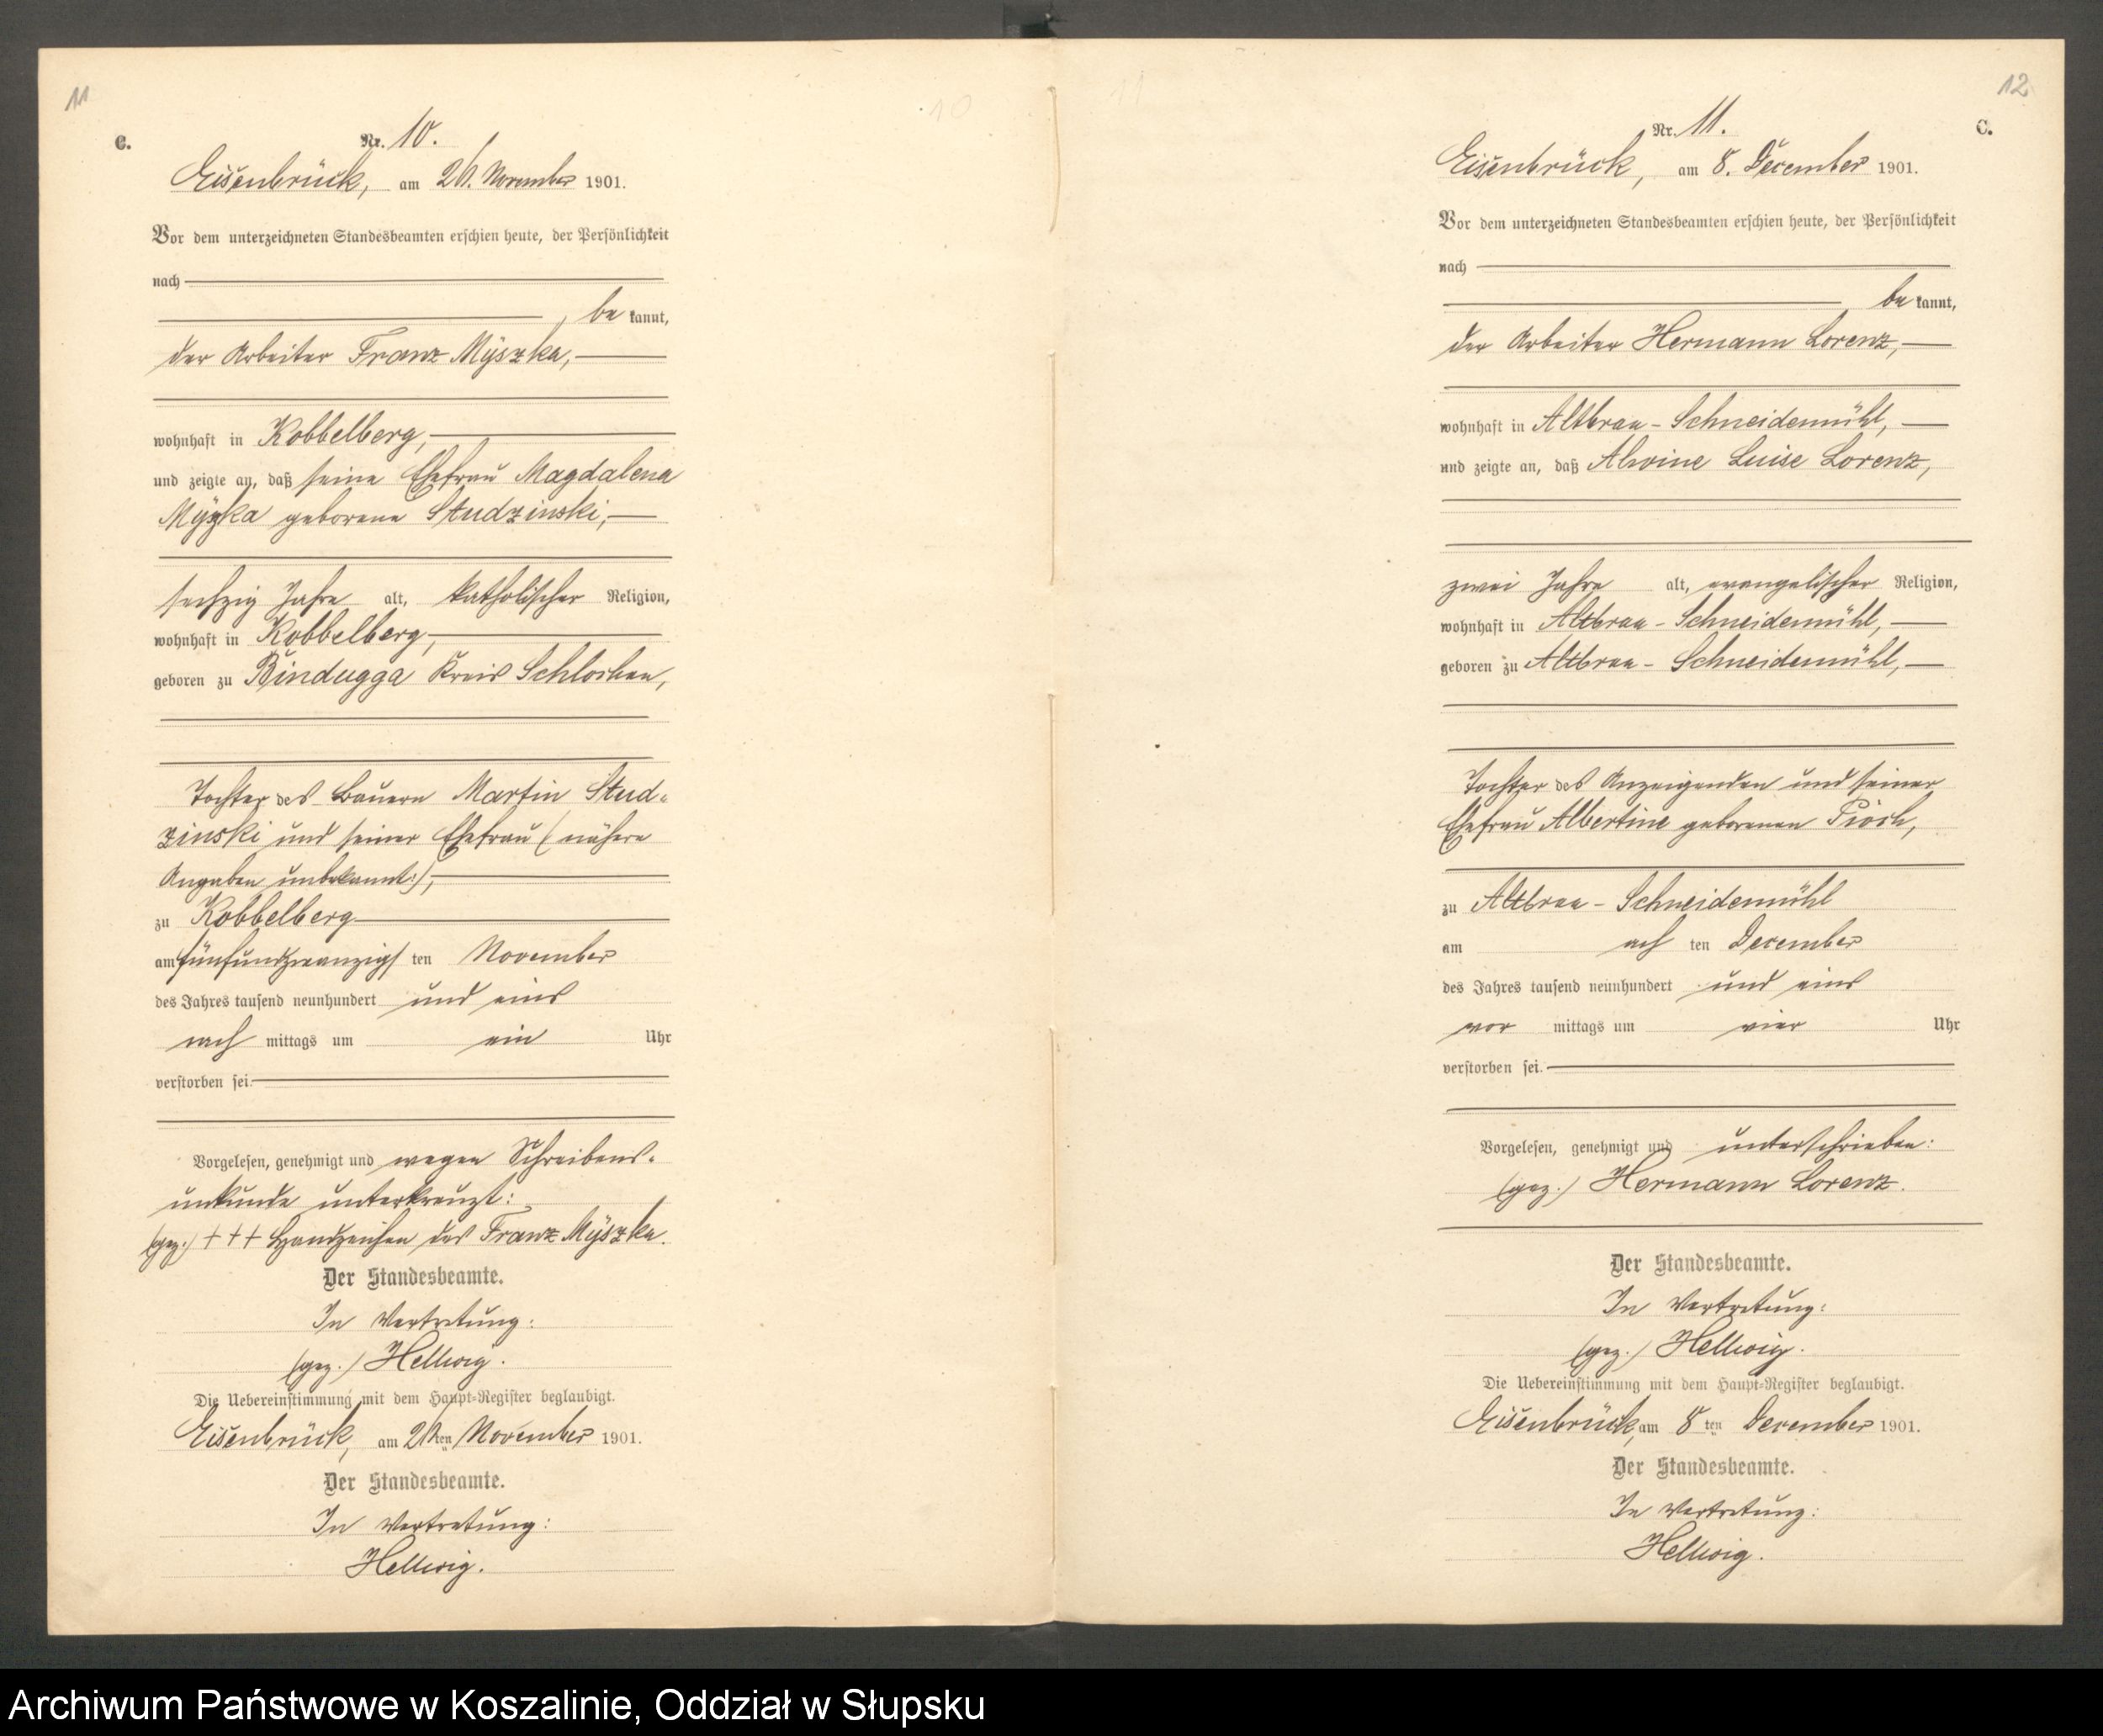 11
C.
Nr. 10.
Eisenbrück, am 26. November 1901.
Vor dem unterzeichneten Standesbeamten erschien heute, der Persönlichkeit
nach
, be kannt,
der Arbeiter Franz Mÿszka,
wohnhaft in Kobbelberg,
und zeigte an, daß seine Ehefrau Magdalena
geborene Studzinski,
sechzig Jahre alt, katholischer Religion,
wohnhaft in Kobbelberg,
geboren zu Bindugga Kreis Schlochau,
Tochter des Bauern Martin Stud-
zinski und seiner Ehefrau (nähere
Angaben unbekannt:),
zu Kobbelberg
am fünfundzwanzigsten November
des Jahres tausend neunhundert und eins
nach mittags um ein Uhr
verstorben sei.
Vorgelesen, genehmigt und wegen Schreibens-
unkunde unterkreuzt:
(gez.) +++ Handzeichen des Franz Mÿszka.
Der Standesbeamte.
In Vertretung:
(gez.) Hellwig.
Die Uebereinstimmung mit dem Haupt-Register beglaubigt.
Eisenbrück, am 26ten November 1901.
Der Standesbeamte.
In Vertretung:
Hellwig.
12
C.
Nr. 11.
Eisenbrück, am 8. December 1901.
Vor dem unterzeichneten Standesbeamten erschien heute, der Persönlichkeit
nach
be kannt,
der Arbeiter Hermann Lorenz,
wohnhaft in Altbraa-Schneidemühl,
und zeigte an, daß Alwine Luise Lorenz,
zwei Jahre alt, evangelischer Religion,
wohnhaft in Altbraa-Schneidemühl,
geboren zu Altbraa-Schneidemühl,
Tochter des Anzeigenden und seiner
Ehefrau Albertine geborenen
zu Altbraa-Schneidemühl
am achten December
des Jahres tausend neunhundert und eins
vor mittags um vier Uhr
verstorben sei.
Vorgelesen, genehmigt und unterschrieben:
(gez.) Hermann Lorenz.
Der Standesbeamte.
In Vertretung:
(gez.) Hellwig.
Die Uebereinstimmung mit dem Haupt-Register beglaubigt.
Eisenbrück, am 8ten December 1901.
Der Standesbeamte.
In Vertretung:
Hellwig.
Archiwum Państwowe w Koszalinie, Oddział w Słupsku